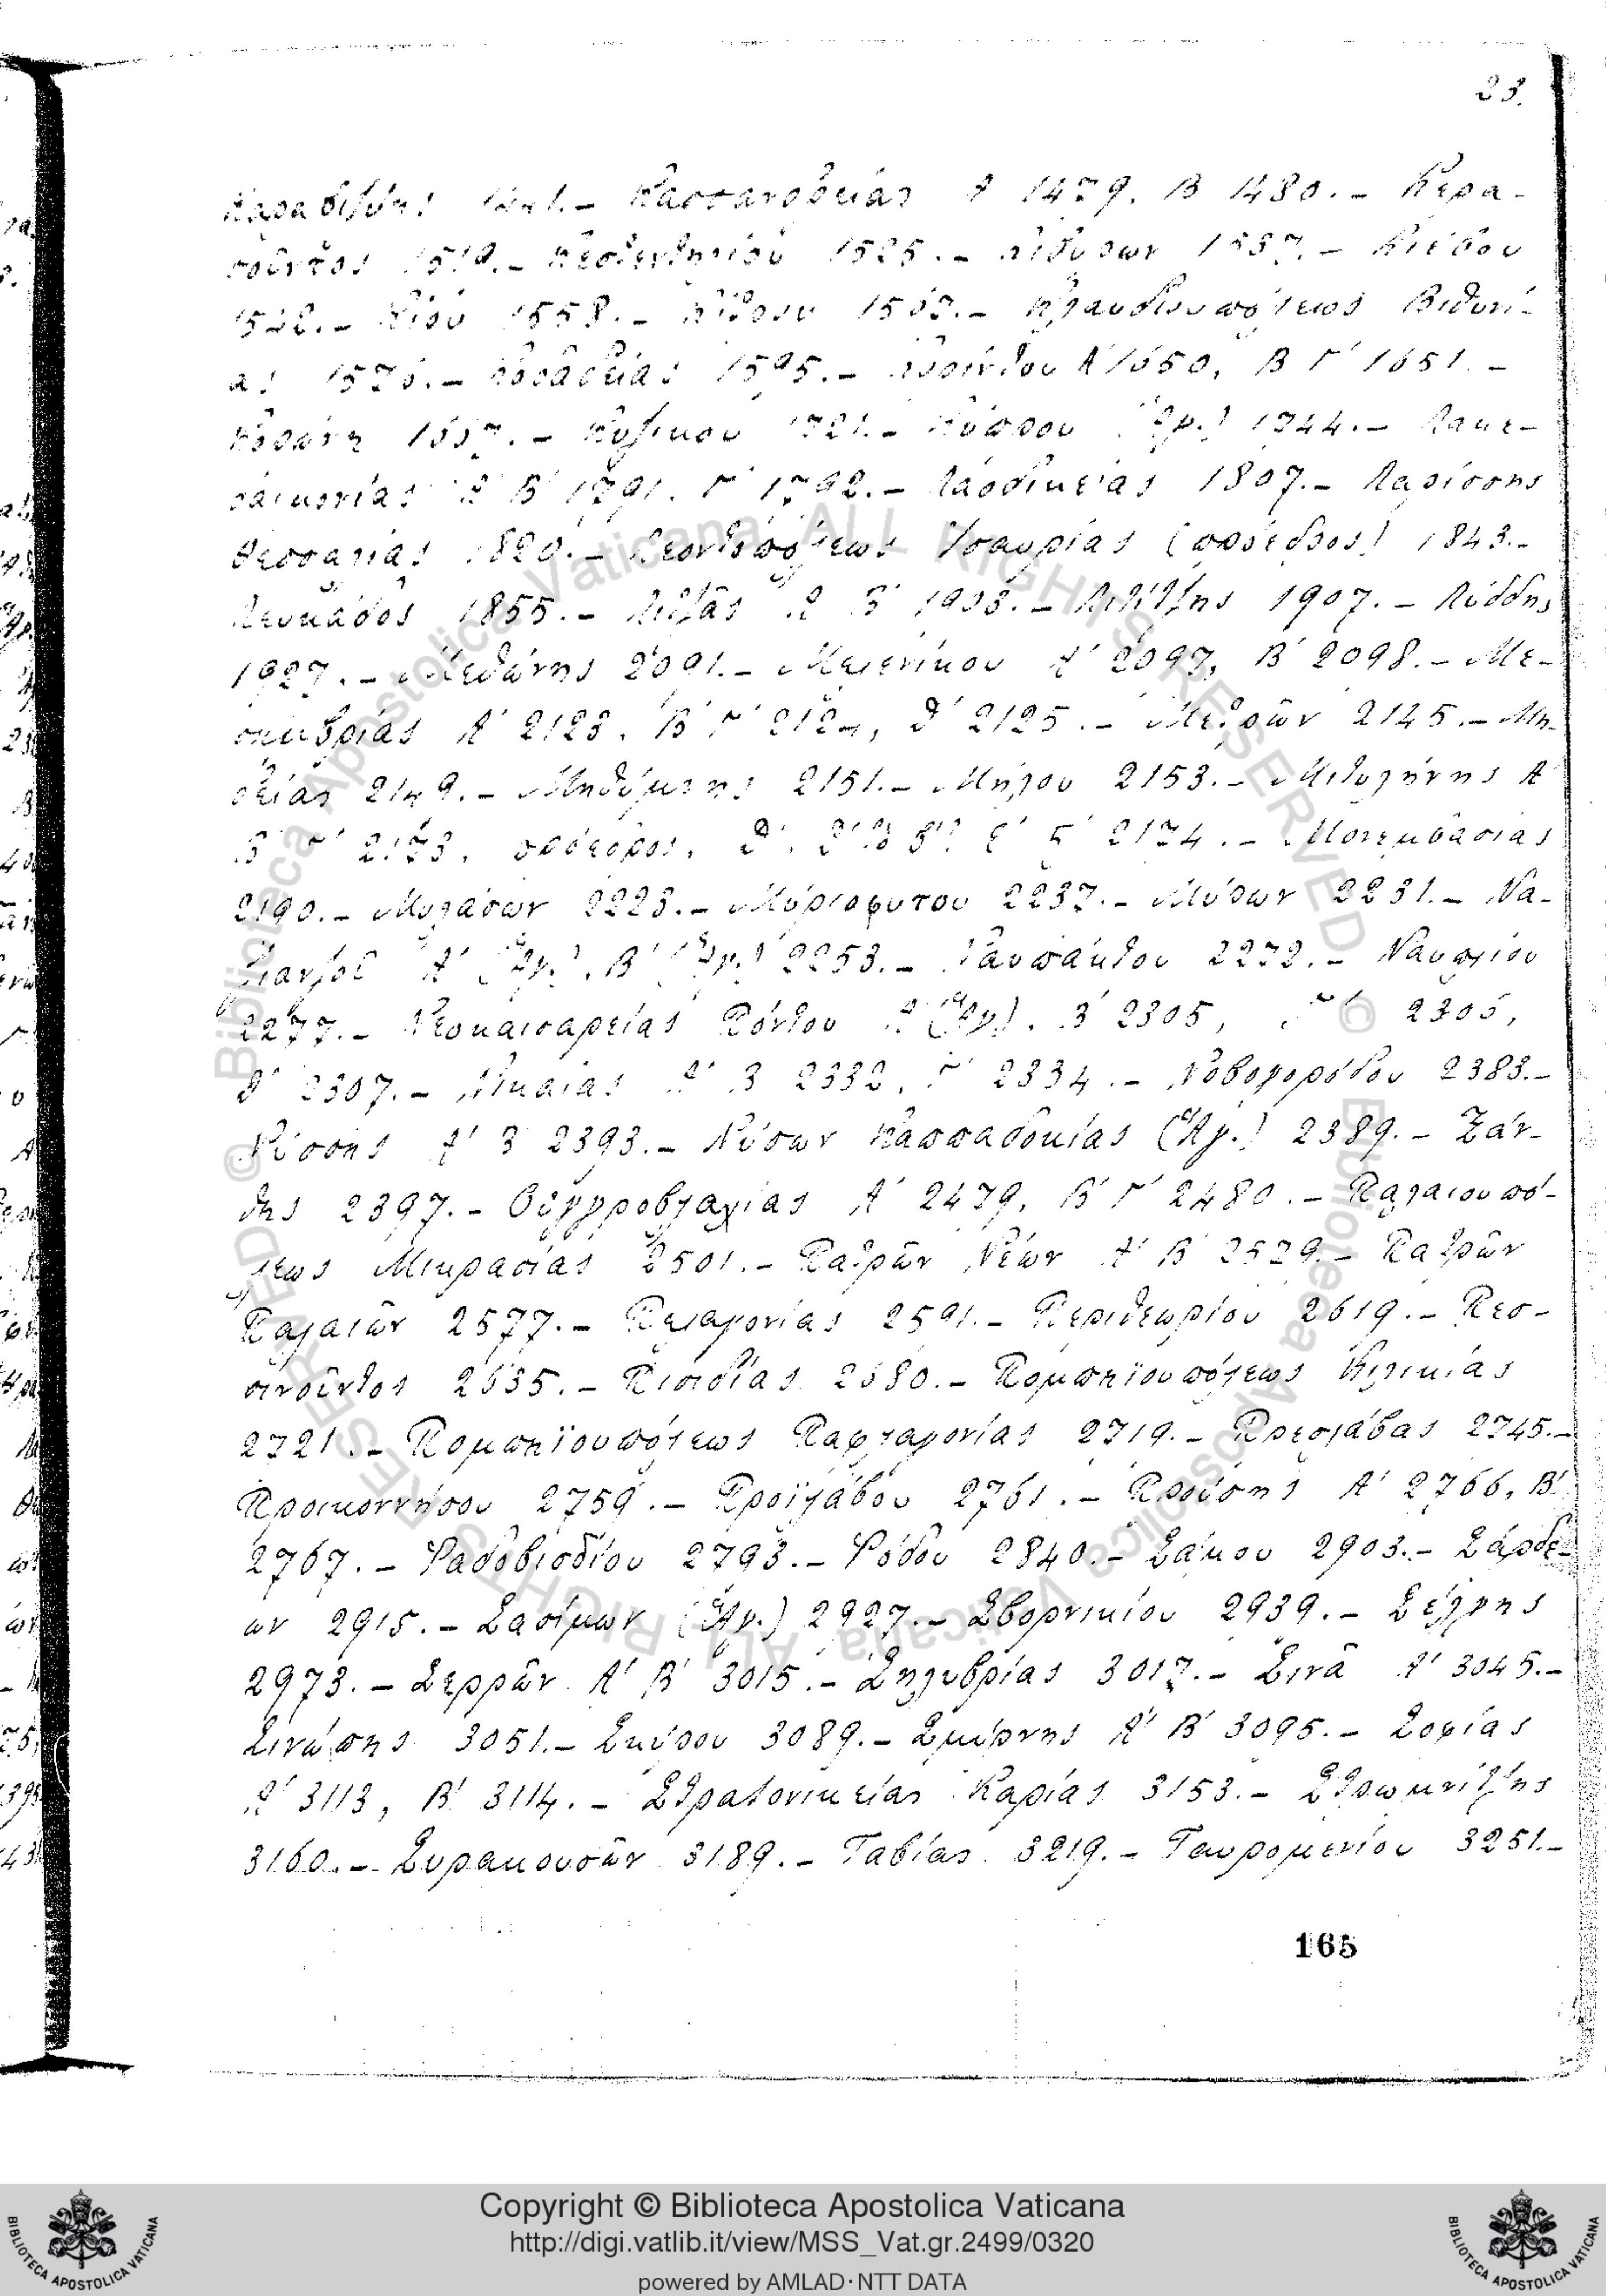 23.
Κασσανδρείας Α 1479, Β 1480.– Κερα-
σοῦντος 1519.– 1525.– 1537.– Κιέβου
Κίου 1558.– Κίτρου Κλαυδιουπόλεως Βιθυνί-
ας Κορίνθου Α΄ 1650, Β Γ΄ 1651.–
Κυζίκου 1721.– Κύπρου 1744.– Λακε-
δαιμονίας Α΄ Β΄ 1791, Γ΄ 1792.– Λαοδικείας 1807.– Λαρίσσης
Θεσσαλίας 1820.– Λεοντοπόλεως Ἰσαυρίας (πρόεδρος) 1843.–
Λευκάδος 1855.– Λιτζᾶς Α Β΄ 1903.– Λιτίτζης 1907.– Λύδδης
1927.– Μεθώνης 2091.– Μελενίκου Α΄ 2097, Β΄ 2098.– Με-
σημβρίας Α΄ 2123, Β΄ Γ΄ 2124, Δ΄ 2125.– Μετρῶν 2145.– Μη-
δείας 2149.– Μηθύμνης 2151.– Μήλου 2153.– Μιτυλήνης Α΄
Β΄ Γ΄ 2173, πρόεδρος, 2174.– Μονεμβασίας
2190.– Μυλάσων 2223.– Μυριοφύτου 2237.– Μύρων 2231.– Να-
ζιανζοῦ Α΄ (Ἅγ.), Β΄ (Ἅγ.) 2253.– Ναυπάκτου 2272.– Ναυπλίου
2277.– Νεοκαισαρείας Πόντου Α΄ (Ἅγ.), Β΄ 2305,
Δ΄ 2307.– Νικαίας Α΄ Β 2332, Γ΄ 2334.– Νοβογορόδου 2383.–
Νύσσης Α΄ Β 2393.– Νύσων Καππαδοκίας (Ἅγ.) 2389.– Ξάν-
θης 2397.– Οὑγγροβλαχίας Α΄ 2479, Β΄ Γ΄ 2480.– Παλαιουπό-
λεως Μικρασίας 2501.– Πατρῶν Νέων Α΄ Β΄ 2529.– Πατρῶν
Παλαιῶν 2577.– Πελαγονίας 2591.– Περιθεωρίου 2619.– Πεσ-
σινοῦντος 2635.– Πισιδίας 2680.– Πομπηϊουπόλεως Κιλικίας
2721.– Πομπηϊουπόλεως Παφλαγονίας 2719.– Πρεσλάβας 2745.–
Προικοννήσου 2759.– Προϊλάβου 2761.– Προύσης Α΄ 2766, Β΄
2767.– Ῥαδοβισδίου 2793.– Ῥόδου 2840.– Σάμου 2903.– Σάρδε-
ων 2915.– Σασίμων (Ἅγ.) 2927.– Σβορνικίου 2939.– Σέλγης
2973.– Σερρῶν Α΄ Β΄ 3015.– Σηλυβρίας 3017.– Σινᾶ Α΄ 3045.–
Σινώπης 3051.– Σκύρου 3089.– Σμύρνης Α΄ Β΄ 3095.– Σοφίας
Α΄ 3113, Β΄ 3114.– Στρατονικείας Καρίας 3153.– Στρωμνίτζης
3160.– Συρακουσῶν 3189.– Ταβίας 3219.– Ταυρομενίου 3251.–
165
© Biblioteca Apostolica Vaticana, ALL RIGHTS RESERVED
Copyright © Biblioteca Apostolica Vaticana
http://digi.vatlib.it/view/MSS_Vat.gr.2499/0320
powered by AMLAD·NTT DATA
BIBLIOTECA APOSTOLICA VATICANA
BIBLIOTECA APOSTOLICA VATICANA